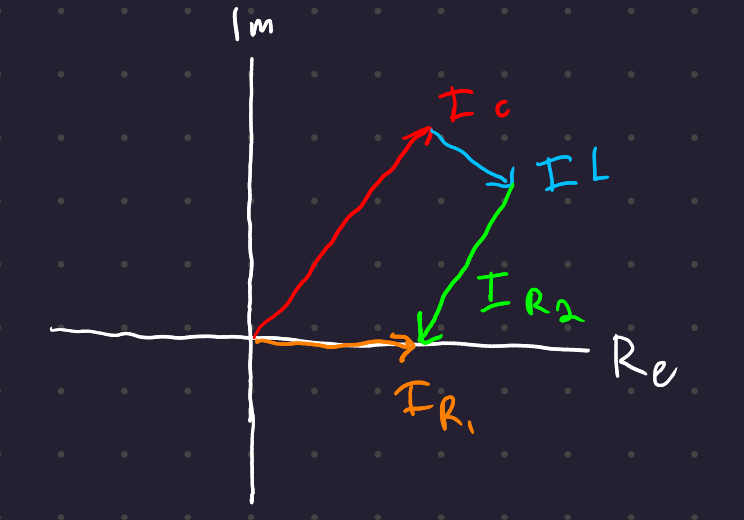 Im
I c
I L
I R2
Re
I R1